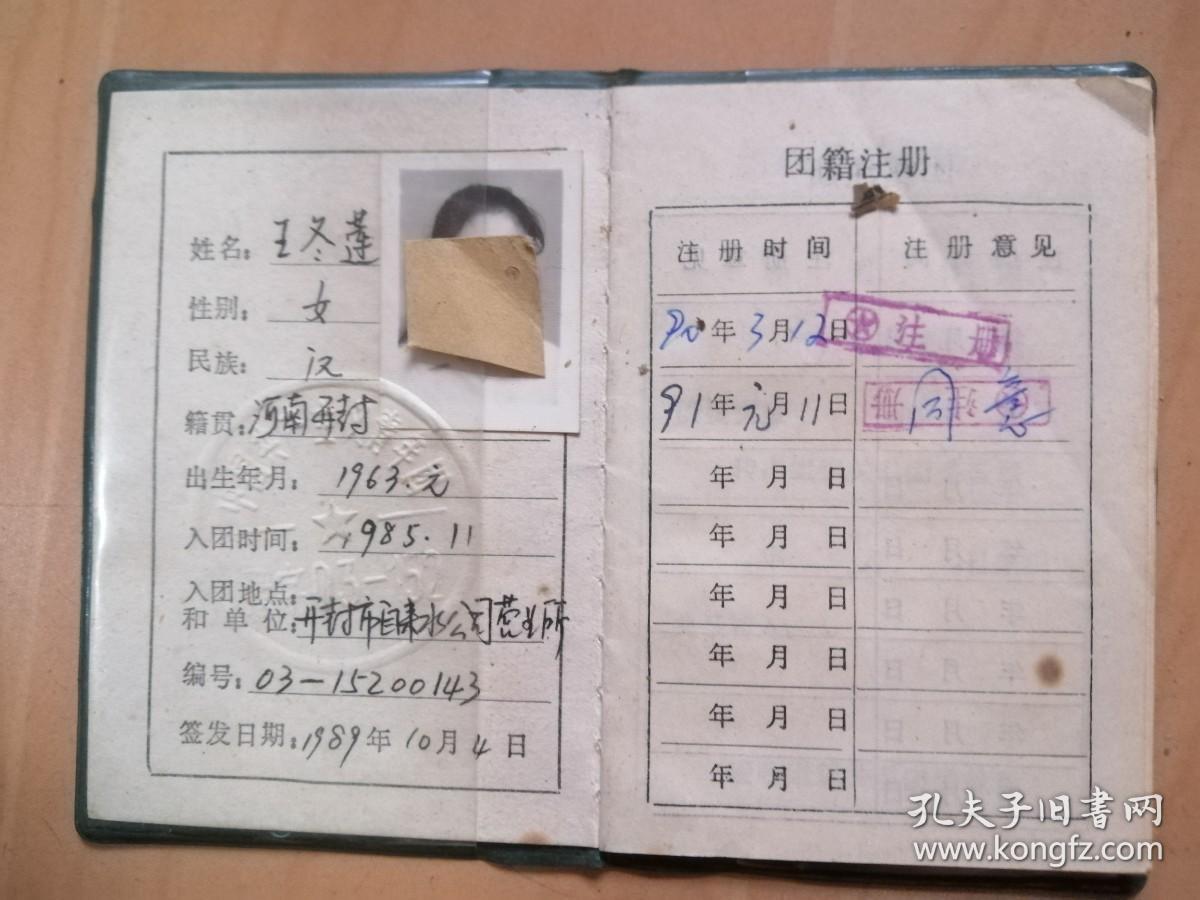 姓名：王冬莲
性别：女
民族：汉
籍贯：河南开封
出生年月：1963.元
入团时间：1985.11
入团地点
和单位：开封市自来水公司营业所
编号：03-15200143
签发日期：1989年10月4日
团籍注册
注册时间 注册意见
90年3月12日 注册
91年元月11日 同意 注册
年 月 日
年 月 日
年 月 日
年 月 日
年 月 日
年 月 日
孔夫子旧书网
www.kongfz.com